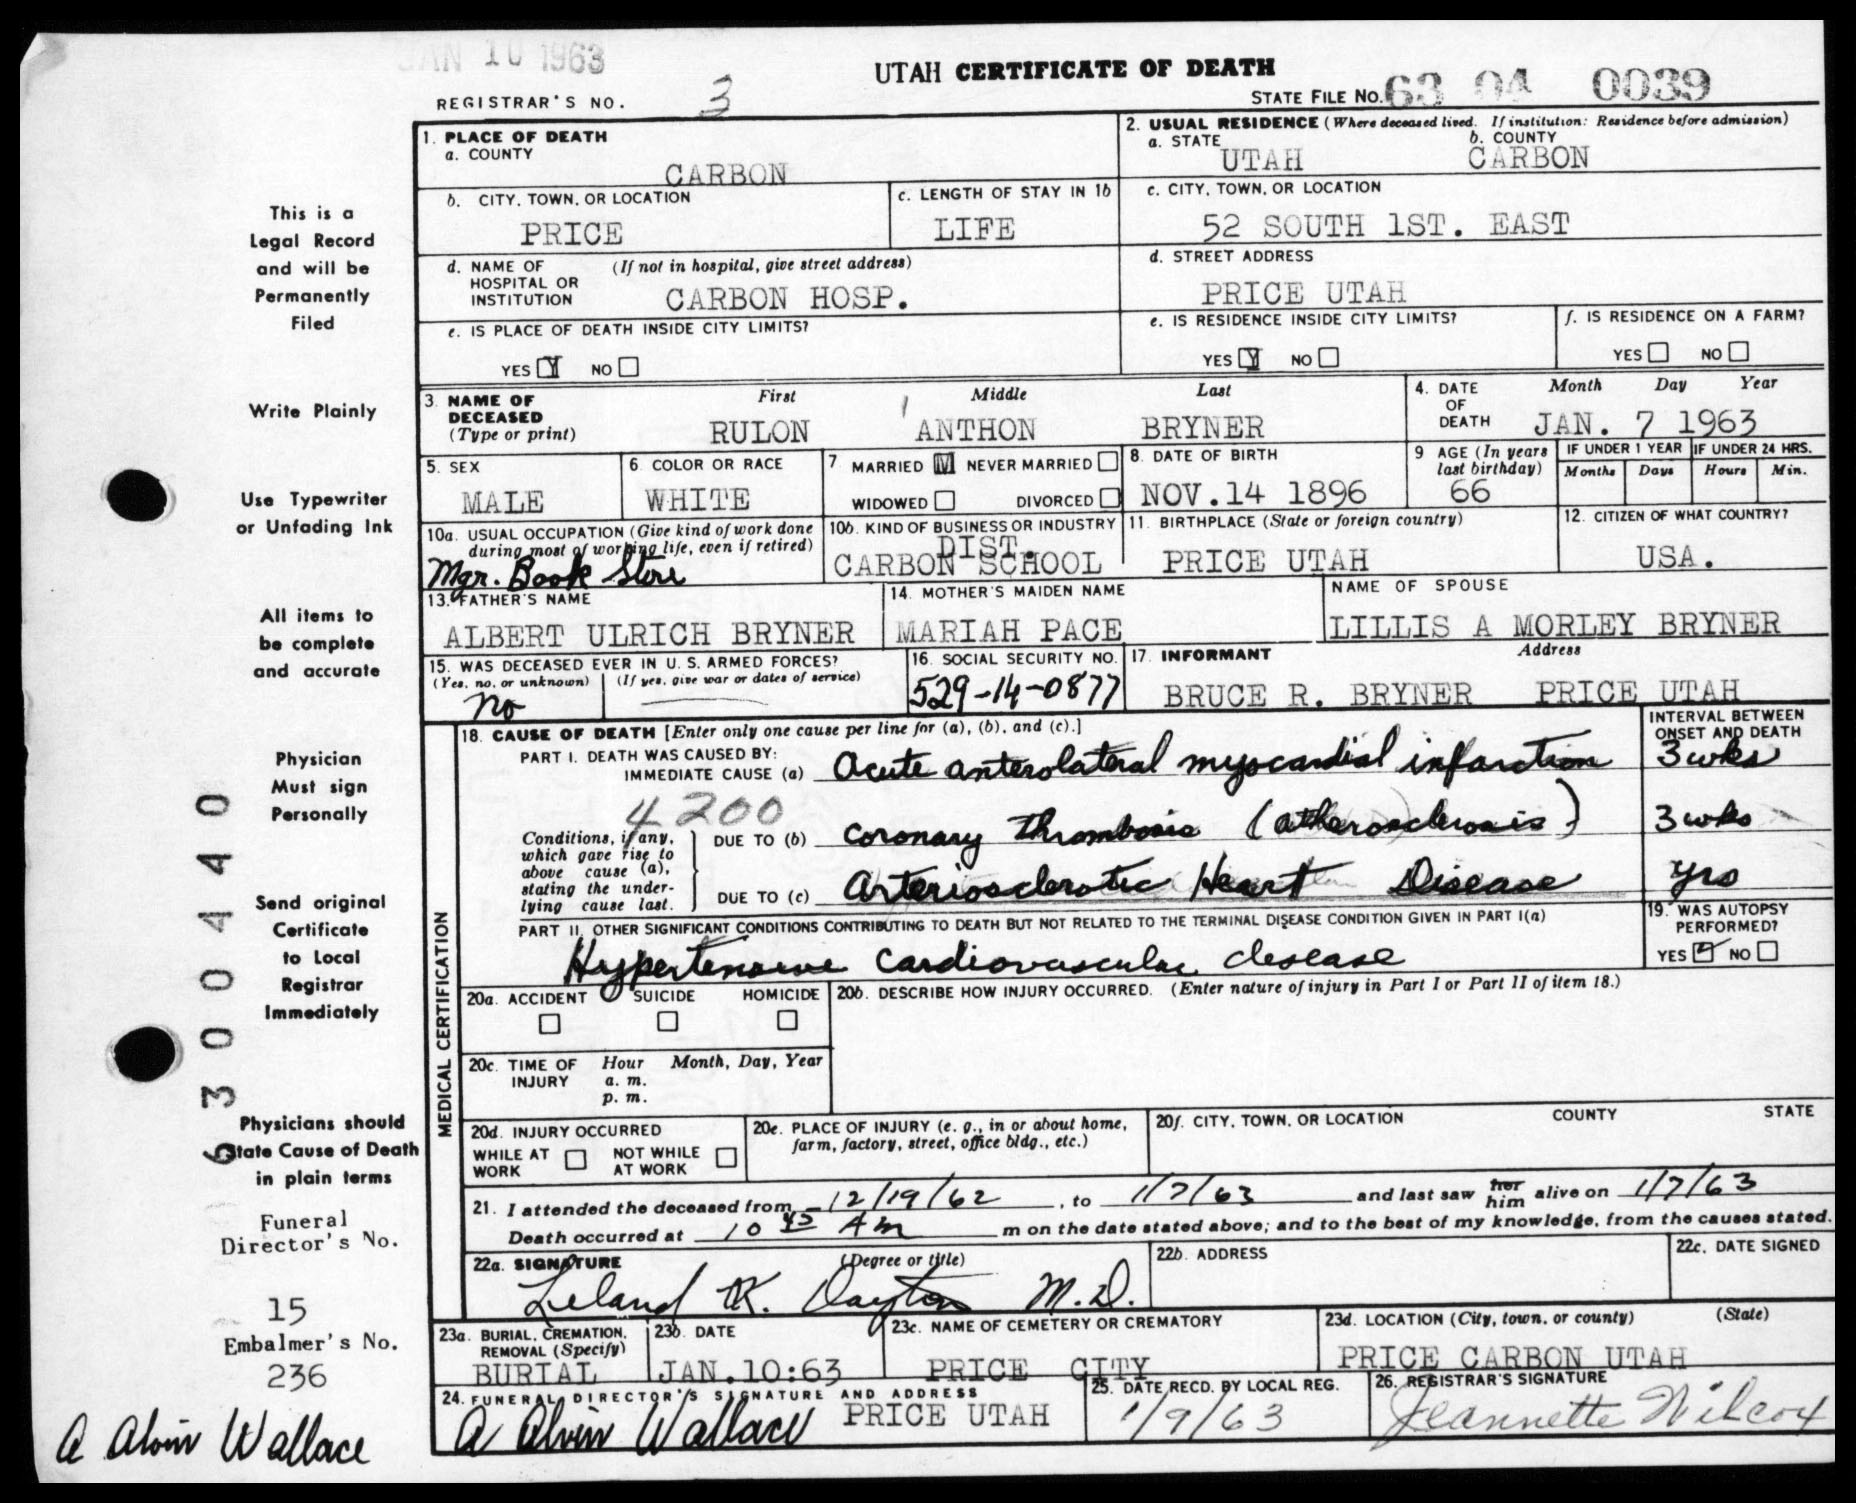 JAN 10 1963
UTAH CERTIFICATE OF DEATH
REGISTRAR'S NO. 3
STATE FILE NO. 63 04 0039
1. PLACE OF DEATH
a. COUNTY
CARBON
2. USUAL RESIDENCE (Where deceased lived. If institution: Residence before admission)
a. STATE UTAH b. COUNTY CARBON
b. CITY, TOWN, OR LOCATION
PRICE
c. LENGTH OF STAY IN 1b
LIFE
c. CITY, TOWN, OR LOCATION
52 SOUTH 1ST. EAST
d. NAME OF HOSPITAL OR INSTITUTION (If not in hospital, give street address)
CARBON HOSP.
d. STREET ADDRESS
PRICE UTAH
e. IS PLACE OF DEATH INSIDE CITY LIMITS?
YES Y NO
e. IS RESIDENCE INSIDE CITY LIMITS?
YES Y NO
f. IS RESIDENCE ON A FARM?
YES NO
3. NAME OF DECEASED (Type or print)
First Middle Last
RULON ANTHON BRYNER
4. DATE OF DEATH Month Day Year
JAN. 7 1963
5. SEX
MALE
6. COLOR OR RACE
WHITE
7 MARRIED M NEVER MARRIED
WIDOWED DIVORCED
8. DATE OF BIRTH
NOV.14 1896
9 AGE (In years last birthday)
66
IF UNDER 1 YEAR IF UNDER 24 HRS.
Months Days Hours Min.
10a. USUAL OCCUPATION (Give kind of work done during most of working life, even if retired)
Mgr. Book Store
10b. KIND OF BUSINESS OR INDUSTRY
DIST.
CARBON SCHOOL
11. BIRTHPLACE (State or foreign country)
PRICE UTAH
12. CITIZEN OF WHAT COUNTRY?
USA.
13. FATHER'S NAME
ALBERT ULRICH BRYNER
14. MOTHER'S MAIDEN NAME
MARIAH PACE
NAME OF SPOUSE
LILLIS A MORLEY BRYNER
15. WAS DECEASED EVER IN U. S. ARMED FORCES?
(Yes, no, or unknown) (If yes, give war or dates of service)
No
16. SOCIAL SECURITY NO.
529-14-0877
17. INFORMANT Address
BRUCE R. BRYNER PRICE UTAH
MEDICAL CERTIFICATION
18. CAUSE OF DEATH [Enter only one cause per line for (a), (b), and (c).]
INTERVAL BETWEEN ONSET AND DEATH
PART I. DEATH WAS CAUSED BY:
IMMEDIATE CAUSE (a) Acute anterolateral myocardial infarction 3 wks
4200
Conditions, if any, which gave rise to above cause (a), stating the underlying cause last.
DUE TO (b) Coronary thrombosis (atherosclerosis) 3 wks
DUE TO (c) Arteriosclerotic Heart Disease yrs
PART II. OTHER SIGNIFICANT CONDITIONS CONTRIBUTING TO DEATH BUT NOT RELATED TO THE TERMINAL DISEASE CONDITION GIVEN IN PART I(a)
Hypertensive cardiovascular disease
19. WAS AUTOPSY PERFORMED?
YES NO
20a. ACCIDENT SUICIDE HOMICIDE
20b. DESCRIBE HOW INJURY OCCURRED. (Enter nature of injury in Part I or Part II of item 18.)
20c. TIME OF INJURY Hour Month, Day, Year
a. m.
p. m.
20d. INJURY OCCURRED
WHILE AT WORK NOT WHILE AT WORK
20e. PLACE OF INJURY (e. g., in or about home, farm, factory, street, office bldg., etc.)
20f. CITY, TOWN, OR LOCATION COUNTY STATE
21. I attended the deceased from 12/19/62, to 1/7/63 and last saw her him alive on 1/7/63
Death occurred at 10 45 AM m on the date stated above; and to the best of my knowledge, from the causes stated.
22a. SIGNATURE (Degree or title)
Leland K. Dayton M.D.
22b. ADDRESS
22c. DATE SIGNED
23a. BURIAL, CREMATION, REMOVAL (Specify)
BURIAL
23b. DATE
JAN.10:63
23c. NAME OF CEMETERY OR CREMATORY
PRICE CITY
23d. LOCATION (City, town, or county) (State)
PRICE CARBON UTAH
24. FUNERAL DIRECTOR'S SIGNATURE AND ADDRESS
A Alvin Wallace PRICE UTAH
25. DATE RECD. BY LOCAL REG.
1/9/63
26. REGISTRAR'S SIGNATURE
Jeannette Wilcox
This is a
Legal Record
and will be
Permanently
Filed
Write Plainly
Use Typewriter
or Unfading Ink
All items to
be complete
and accurate
Physician
Must sign
Personally
Send original
Certificate
to Local
Registrar
Immediately
Physicians should
State Cause of Death
in plain terms
6300440
Funeral
Director's No.
15
Embalmer's No.
236
A Alvin Wallace